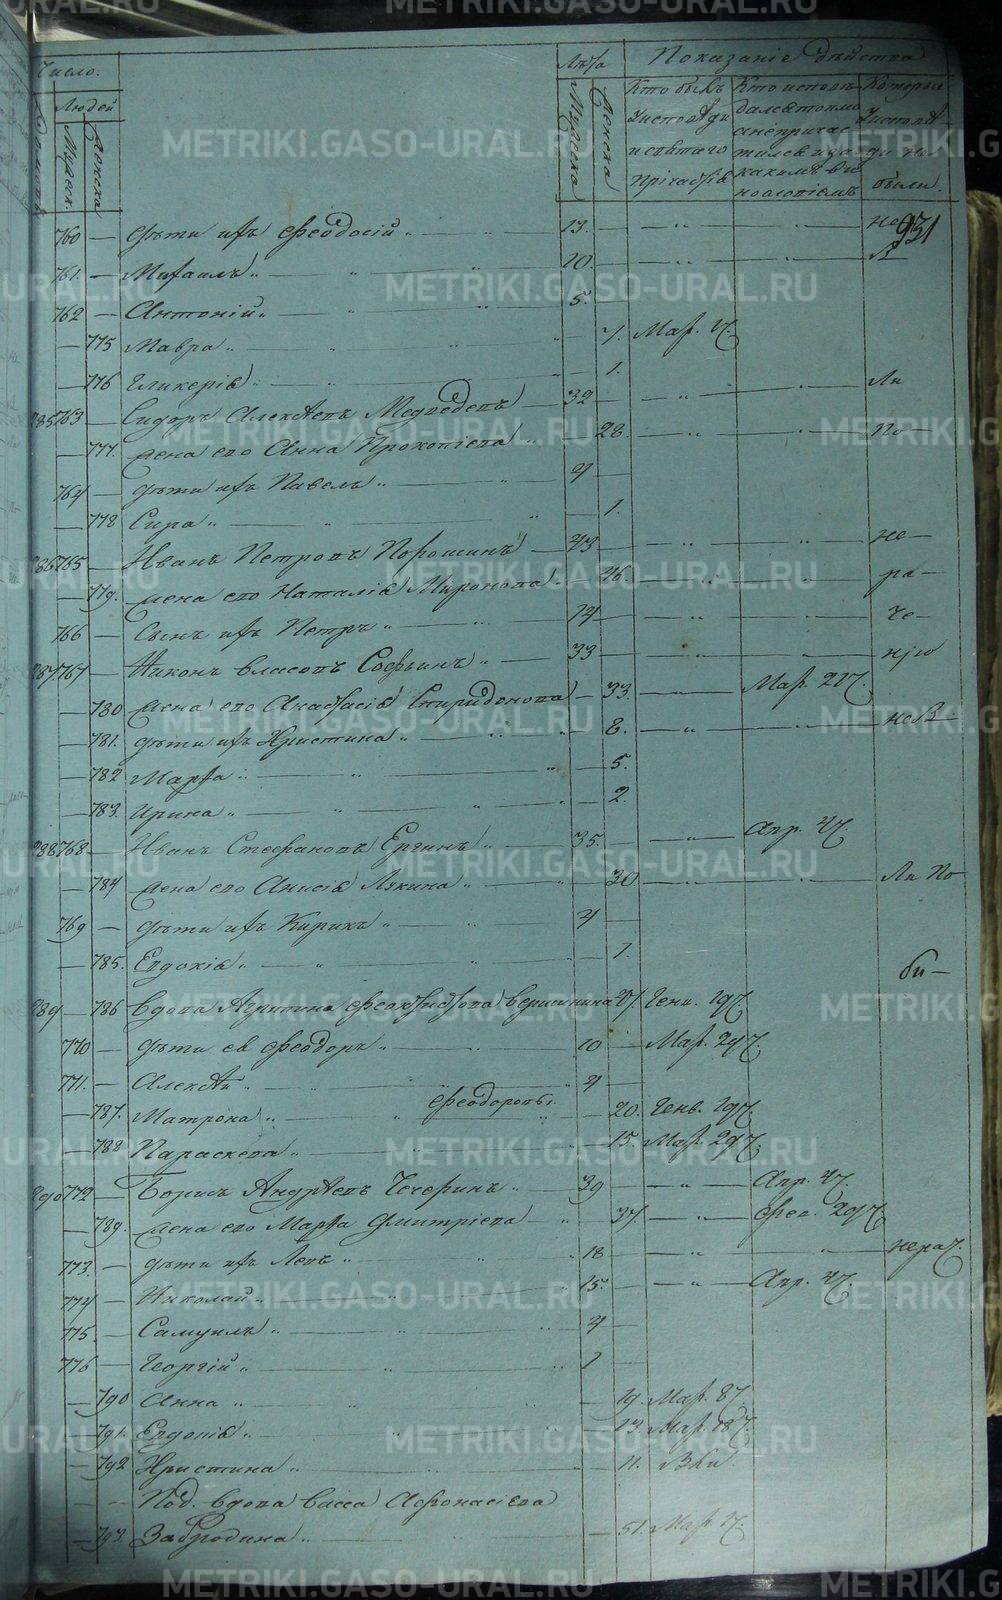 METRIKI.GASO-URAL.RU
Число.
Людей
Домовъ
Мужеск.
Женска
Лѣта
Мужеска
Женска
Показаніе дѣйства
Кто былъ у исповѣди и святаго причастія
Кто исповѣдался токмо а не причастился и за какимъ винословіемъ
Которые у исповѣди не были.
931
760 — Дѣти ихъ Феодосій — 13. — не
761. — Михаилъ — 10.
762 — Антоній — 5.
— 775 Мавра — 7. Мар. 17.
— 776 Гликерія — 1.
285 763 — Сидоръ Алексѣевъ Медведевъ — 32 — Ли
— 777. жена его Анна Прокопіева — 28. — По —
764 — Дѣти ихъ Павелъ — 4 —
— 778 Сира — 1.
286 765 — Иванъ Петровъ Порошинъ — 43 — не —
— 779. жена его Наталія Миронова — 46. — ра —
766 — Сынъ ихъ Петръ — 14 — че —
287 767 — Никонъ Власовъ Софьинъ — 33 — нiю
— 780 жена его Анастасія Спиридонова — 33. — Мар. 217.
— 781. Дѣти ихъ Христина — 8. — неб —
— 782 Марѳа — 5.
— 783. Ирина — 2.
288 768 — Иванъ Стефановъ Ергинъ — 35. — Апр. 47.
— 784 жена его Анисія Лукина — 30 — Ли По
769 — Дѣти ихъ Кирикъ — 4 —
— 785. Евдокія — 1.
бы —
289 — 786 Вдова Агрипина Феоктистова Вершинина 47. Генв. 197.
770 — Дѣти ея Феодоръ — 10 — Мар. 297.
771. — Алексѣй — 4 —
Феодоровы.
— 787. Матрона — 20. Генв. 197.
— 788 Параскева — 15. Мар. 297.
290 772 — Борисъ Андрѣевъ Чечеринъ — 39 — Апр. 47.
— 789. жена его Марѳа Дмитріева — 37. — Фев. 297.
773. — Дѣти ихъ Левъ — 18 — нерач.
774 — Николай — 15. — Апр. 47.
775. — Самуилъ — 4 —
776 — Георгій — 1
— 790 Анна — 19. Мар. 87.
— 791. Евдокія — 13. Мар. 187.
— 792 Христина — 11.
Под. вдова Васса Афонасіева
— 793. Забродина — 51. Мар. 17.